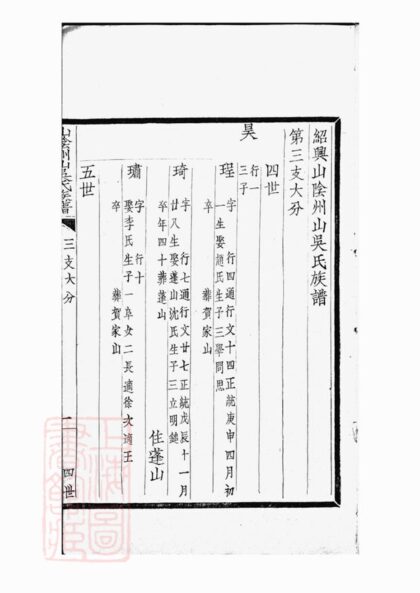 紹興山陰州山吳氏族譜
第三支大分
四世
昊
行一
三子
珵
字　行四通行文十四正統庚申四月初
一生娶趙氏生子三舉同思
卒　葬賀家山
琦
字　行七通行文廿七正統戊辰十一月
廿八生娶蓬山沈氏生子三立明鏡
卒年四十葬蓬山
住蓬山
璛
字　行十
娶李氏生子一阜女二長適徐次適王
卒　葬賀家山
五世
山陰州山吳氏族譜
三支大分
一
四世